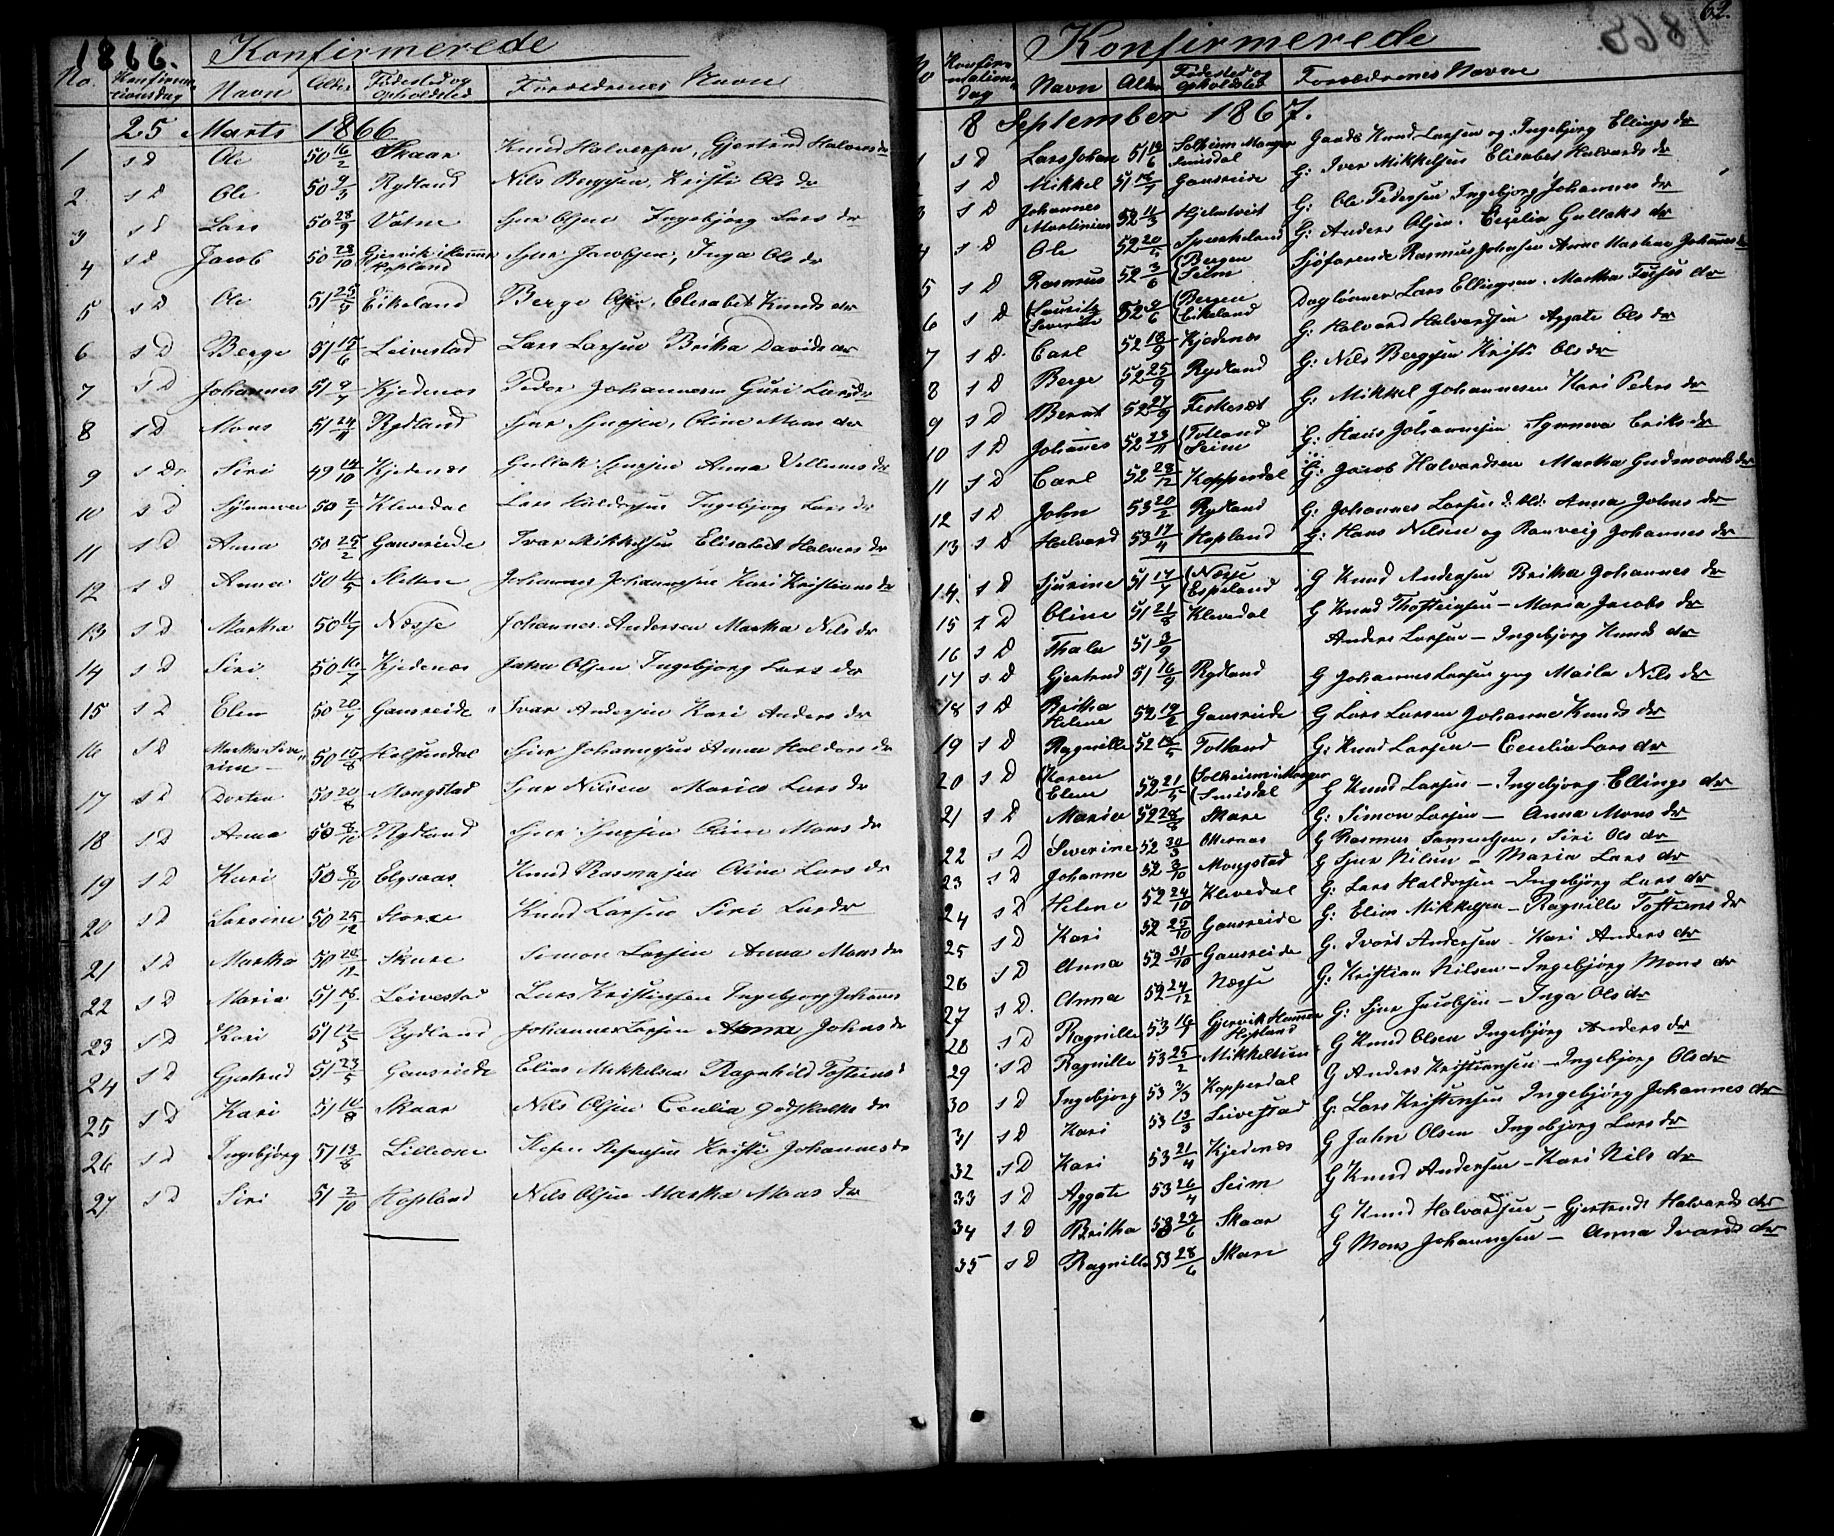 1866. Konfirmerede
No. Konfirmationsdag Navn Alder Fødested og Opholdsted Forældrenes Navn
25 Marts 1866
1 s D Ole 50 16/2 Skaar Knud Halversen, Gjertrud Halvors dr
2 s D Ole 50 9/3 Rydland Nils Bergesen, Kristi Ols dr
3 s d Lars 50 28/9 Votne Sjur Olsen Ingebjørg Lars dr
4 s d Jacob 50 28/10 Gjervik i Hammer Hopland Sjur Jacobsen, Inga Ols dr
5 s D Ole 51 25/5 Eikeland Berge Olsen, Elisabet Knuds dr
6 s D Berge 51 15/6 Leivestad Lars Larsen Britha Davids dr
7 s D Johannes 51 9/7 Kjedenes Peder Johannesen Guri Lars dr
8 s D Mons 51 24/11 Rydland Sjur Sjursen, Oline Mons dr
9 s D Siri 49 14/10 Kjedenes Gullak Sjursen Anna Villums dr
10 s D Synneva 50 2/1 Klevedal Lars Haldorsen Ingebjørg Lars dr
11 s D Anna 50 25/2 Gausreide Ivar Mikkelsen Elisabet Halvors dr
12 s D Anna 50 4/5 Johannes Johannesen Kari Kristians dr
13 s D Martha 50 11/7 Næsse Johannes Andersen Martha Nils dr
14 s D Siri 50 16/7 Kjedenes John Olsen Ingebjørg Lars dr
15 s D Elen 50 20/7 Gausreide Ivar Andersen Kari Anders dr
16 s D Martha Severine 50 15/8 Sjur Johannesen Anna Haldors dr
17 s D Dorten 50 20/8 Mongstad Sjur Nilsen Maria Lars dr
18 s D Anna 50 8/10 Rydland Sjur Sjursen Oline Mons dr
19 s D Kari 50 8/10 Elgsaas Knud Rasmusen Oline Lars dr
20 s D Larsine 50 25/12 Knud Larsen Siri Lars dr
21 s D Martha 50 28/12 Skare Simon Larsen Anna Mons dr
22 s D Maria 51 18/1 Leivestad Lars Kristensen Ingebjørg Johannes
23 s D Kari 51 12/5 Rydland Johannes Larsen Anna Johns dr
24 s D Gjertrud 51 23/5 Gausreide Elias Mikkelsen Ragnhild Tostens
25 s D Kari 51 10/8 Skaar Nils Olsen Cecilia Godskalks dr
26 s D Ingebjørg 51 13/8 Lilleone Kristi Johannes dr
27 s D Siri 51 2/10 Hopland Nils Olsen Martha Mons dr
62.
Konfirmerede
No Konfirmationsdag Navn Alder Fødested og Opholdsted Forældrenes Navne
8 September 1867.
1 s D Lars Johan 51 19/6 Solheim Manger Smisdal Gaard: Knud Larsen og Ingebjørg Ellings dr
s D Mikkel 51 Gausreide G: Iver Mikkelsen Elisabet Halvards dr
3 s D Johannes Martinius 52 11/3 Hjelmtveit G: Ole Pedersen Ingebjørg Johannes dr
4 s D Ole 52 20/5 Spurkeland G: Anders Olsen. Cecilia Gullaks dr
5 s D Rasmus 52 3/6 (Bergen (Seim Sjøfarende Rasmus Johnsen Anne Marthea Johannes dr
6 s D (Lauritz (Severin 52 9/6 (Bergen (Eikeland Dagløner Lars Ellingsen. Martha dr
7 s D. Carl 52 18/9 Kjedenes G: Halvard Halvardsen Aggate Ols dr
8 s D Berge 52 25/9 Rydland G: Nils Bergesen Kristi Ols dr
9 s D Bernt 52 27/9 Feskeset G: Mikkel Johannesen Kari Peders dr
10 s D Johannes 52 23/11 (Totland (Seim G: Hans Johannesen Synneva Eriks dr
11 s D Carl 52 28/12 Kopperdal G: Jacob Halvardsen Martha Gudmunds dr
12 s D John 53 20/2 Rydland G: Johannes Larsen Anna Johns dr
13 s D Halvard 53 17/4 Hopland G: Hans Nilsen og Ranveig Johannes dr
14. s D Sjurine 51 17/7 (Næsse (Espeland G Knud Andersen Britha Johannes dr
15 s D Oline 51 21/8 Klevedal G Knud Thosteinsen – Maria Jacobs dr
16 s D Thala 51 3/9 Anders Larsen – Ingebjørg Knuds dr
17 s D Gjertrud 51 16/9 Rydland G Johannes Larsen og Maila Nils dr
18 s D Britha Helene 52 19/2 Gausreide G Lars Larsen Johanne Knuds dr
19 s D Ragnille 52 15/5 Totland G: Knud Larsen – Cecilia Lars dr
20 s D (Karen (Elene 52 21/5 (Solheim i Manger (Smisdal G Knud Larsen – Ingebjørg Ellings dr
21 s D Maria 52 28/8 Skare G: Simon Larsen – Anna Mons dr
22 s D Severine 52 30/3 Otternes G Rasmus Samuelsen, Siri Ols dr
23 s D Johanne 52 3/10 Mongstad G Sjur Nilsen – Maria Lars dr
24 s D Helene 52 24/10 Klevedal G: Lars Haldorsen – Ingebjørg Lars dr
25 s D Kari 52 25/10 Gausreide G: Elias Mikkelsen – Ragnille Tostens dr
26 s D Anna 52 31/10 Gausreide G. Ivart Andersen – Kari Anders dr
27 s D. Anna 52 24/12 Næsse G: Kristian Nilsen – Ingebjørg Mons dr
28 s D Ragnille 53 Gjervik Hammer Hopland G: Sjur Jacobsen – Inga Ols dr
29 s D Ragnille 53 25/2 Mikkeltun G Knud Olsen Ingebjørg Anders dr
30 s D Ingebjørg 53 3/3 Kopperdal G Anders Kristiansen – Ingebjørg Ols dr
31 s D Kari 53 13/3 Leivestad G: Lars Kristensen Ingebjørg Johannes dr
32 s D Kari 53 21/4 Kjedenes G John Olsen Ingebjørg Lars dr
33 s D Aggate 53 26/4 Seim G Knud Andersen – Kari Nils dr
34 s D Britha 53 23/6 Skaar G Knud Halvardsen – Gjertruds Halvards dr
35 s D Ragnille 53 28/6 Skare G Mons Johannesen – Anna Ivards dr